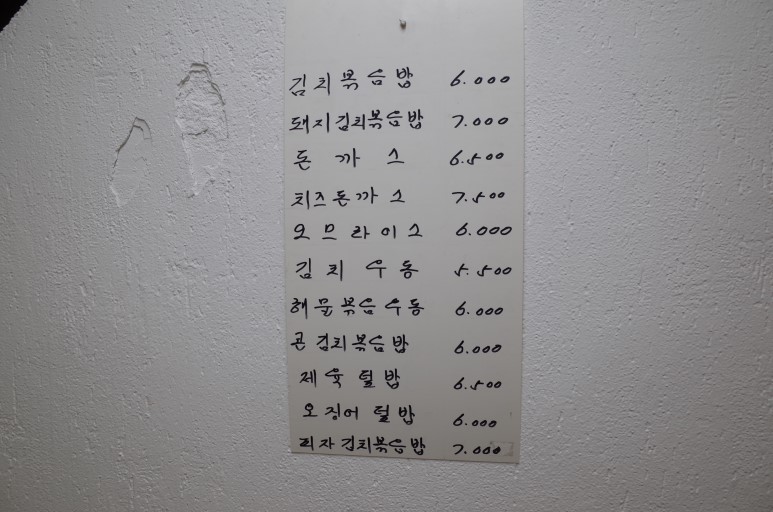 김치볶음밥 6.000
돼지김치볶음밥 7.000
돈까스 6.500
치즈돈까스 7.500
오므라이스 6.000
김치우동 5.500
해물볶음우동 6.000
콘김치볶음밥 6.000
제육덮밥 6.500
오징어덮밥 6.000
피자김치볶음밥 7.000